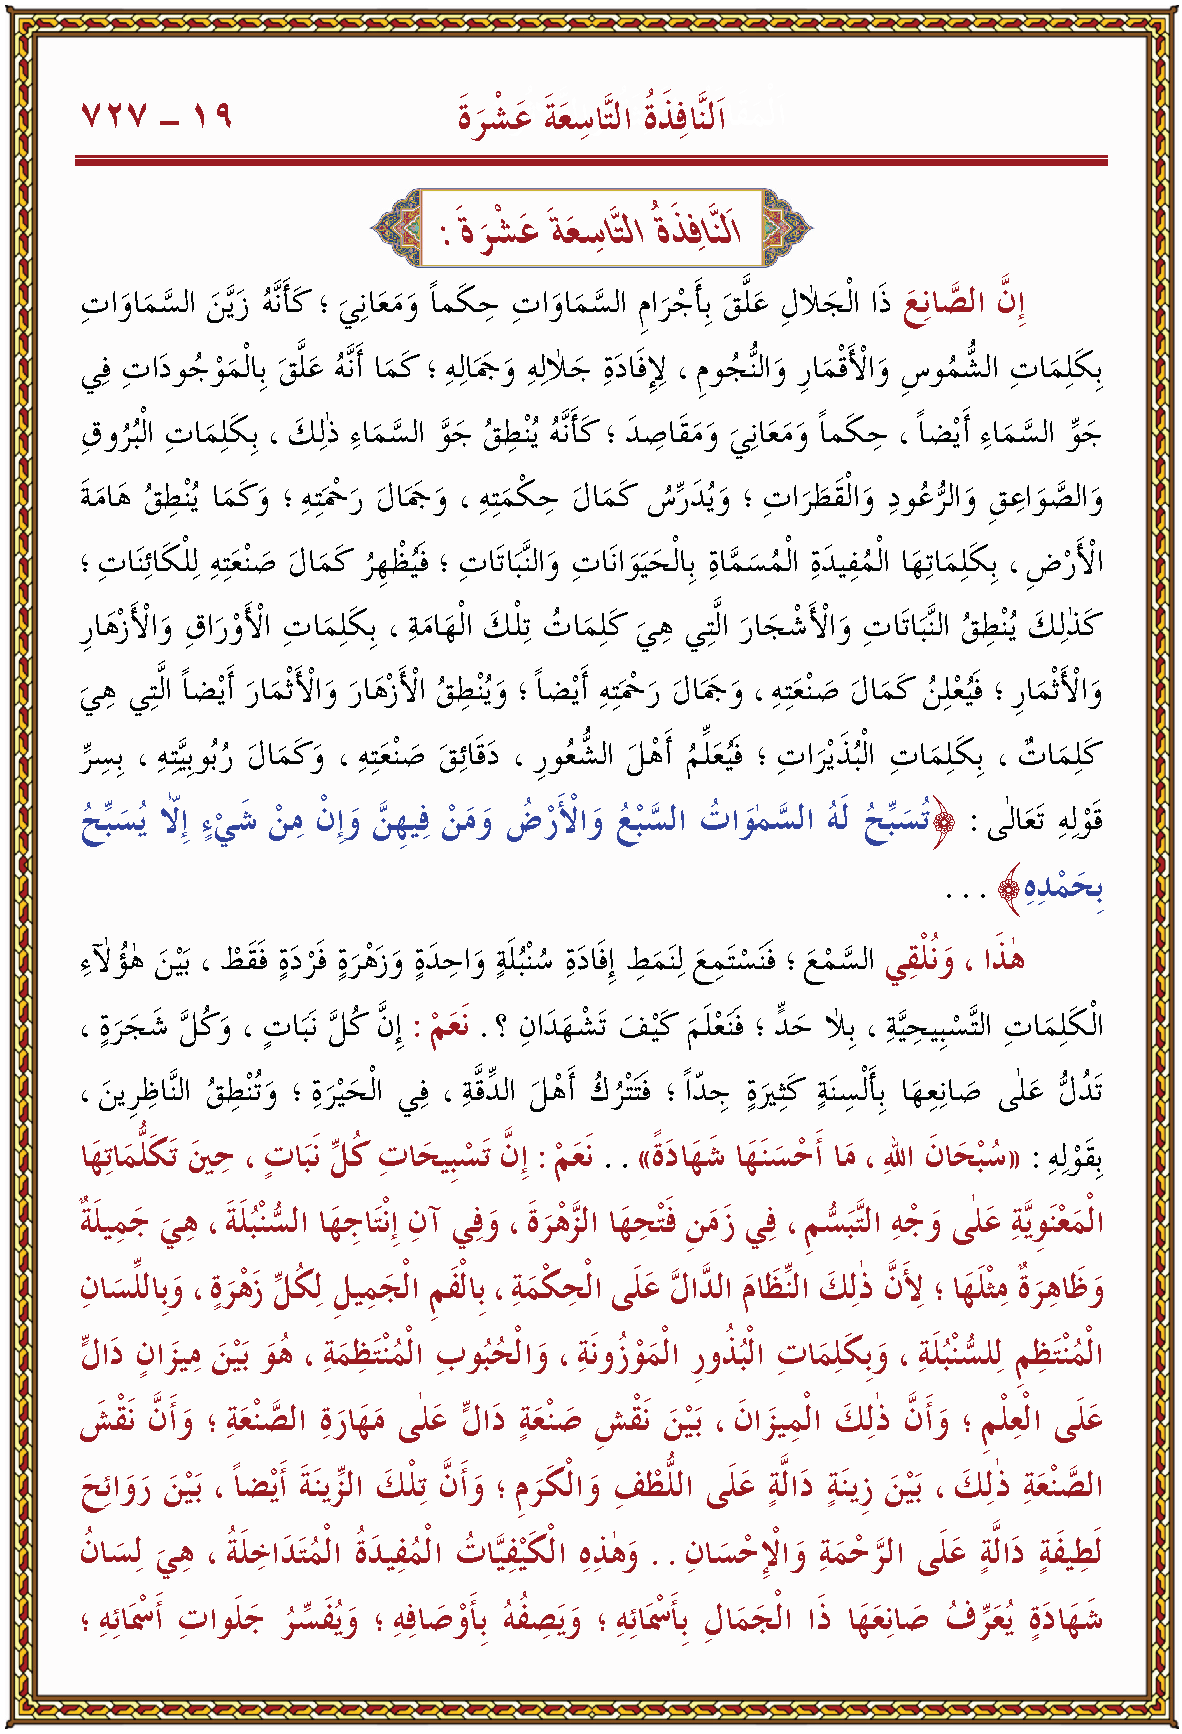 اَلنَّافِذَةُ التَّاسِعَةَ عَشْرَةَ ١٩ ــ ٧٢٧
اَلنَّافِذَةُ التَّاسِعَةَ عَشْرَةَ :
إِنَّ الصَّانِعَ ذَا الْجَلاٰلِ عَلَّقَ بِأَجْرَامِ السَّمَاوَاتِ حِكَماً وَمَعَانِيَ ؛ كَأَنَّهُ زَيَّنَ السَّمَاوَاتِ
بِكَلِمَاتِ الشُّمُوسِ وَالْأَقْمَارِ وَالنُّجُومِ ، لِإِفَادَةِ جَلاٰلِهِ وَجَمَالِهِ ؛ كَمَا أَنَّهُ عَلَّقَ بِالْمَوْجُودَاتِ فِي
جَوِّ السَّمَاءِ أَيْضاً ، حِكَماً وَمَعَانِيَ وَمَقَاصِدَ ؛ كَأَنَّهُ يُنْطِقُ جَوَّ السَّمَاءِ ذٰلِكَ ، بِكَلِمَاتِ الْبُرُوقِ
وَالصَّوَاعِقِ وَالرُّعُودِ وَالْقَطَرَاتِ ؛ وَيُدَرِّسُ كَمَالَ حِكْمَتِهِ ، وَجَمَالَ رَحْمَتِهِ ؛ وَكَمَا يُنْطِقُ هَامَةَ
الْأَرْضِ ، بِكَلِمَاتِهَا الْمُفِيدَةِ الْمُسَمَّاةِ بِالْحَيَوَانَاتِ وَالنَّبَاتَاتِ ؛ فَيُظْهِرُ كَمَالَ صَنْعَتِهِ لِلْكَائِنَاتِ ؛
كَذٰلِكَ يُنْطِقُ النَّبَاتَاتِ وَالْأَشْجَارَ الَّتِي هِيَ كَلِمَاتُ تِلْكَ الْهَامَةِ ، بِكَلِمَاتِ الْأَوْرَاقِ وَالْأَزْهَارِ
وَالْأَثْمَارِ ؛ فَيُعْلِنُ كَمَالَ صَنْعَتِهِ ، وَجَمَالَ رَحْمَتِهِ أَيْضاً ؛ وَيُنْطِقُ الْأَزْهَارَ وَالْأَثْمَارَ أَيْضاً الَّتِي هِيَ
كَلِمَاتٌ ، بِكَلِمَاتِ الْبُذَيْرَاتِ ؛ فَيُعَلِّمُ أَهْلَ الشُّعُورِ ، دَقَائِقَ صَنْعَتِهِ ، وَكَمَالَ رُبُوبِيَّتِهِ ، بِسِرِّ
قَوْلِهِ تَعَالٰى : ﴿تُسَبِّحُ لَهُ السَّمٰوَاتُ السَّبْعُ وَالْأَرْضُ وَمَنْ فِيهِنَّ وَإِنْ مِنْ شَيْءٍ إِلاّٰ يُسَبِّحُ
بِحَمْدِهِ﴾ . . .
هٰذَا ، وَنُلْقِي السَّمْعَ ؛ فَنَسْتَمِعَ لِنَمَطِ إِفَادَةِ سُنْبُلَةٍ وَاحِدَةٍ وَزَهْرَةٍ فَرْدَةٍ فَقَطْ ، بَيْنَ هٰؤُلَآءِ
الْكَلِمَاتِ التَّسْبِيحِيَّةِ ، بِلاٰ حَدٍّ ؛ فَنَعْلَمَ كَيْفَ تَشْهَدَانِ ؟ . نَعَمْ : إِنَّ كُلَّ نَبَاتٍ ، وَكُلَّ شَجَرَةٍ ،
تَدُلُّ عَلٰى صَانِعِهَا بِأَلْسِنَةٍ كَثِيرَةٍ جِدّاً ؛ فَتَتْرُكُ أَهْلَ الدِّقَّةِ ، فِي الْحَيْرَةِ ؛ وَتُنْطِقُ النَّاظِرِينَ ،
بِقَوْلِهِ : «سُبْحَانَ اللهِ ، مَا أَحْسَنَهَا شَهَادَةً» . . نَعَمْ : إِنَّ تَسْبِيحَاتِ كُلِّ نَبَاتٍ ، حِينَ تَكَلُّمَاتِهَا
الْمَعْنَوِيَّةِ عَلٰى وَجْهِ التَّبَسُّمِ ، فِي زَمَنِ فَتْحِهَا الزَّهْرَةَ ، وَفِي آنِ إِنْتَاجِهَا السُّنْبُلَةَ ، هِيَ جَمِيلَةٌ
وَظَاهِرَةٌ مِثْلَهَا ؛ لِأَنَّ ذٰلِكَ النِّظَامَ الدَّالَّ عَلَى الْحِكْمَةِ ، بِالْفَمِ الْجَمِيلِ لِكُلِّ زَهْرَةٍ ، وَبِاللِّسَانِ
الْمُنْتَظِمِ لِلسُّنْبُلَةِ ، وَبِكَلِمَاتِ الْبُذُورِ الْمَوْزُونَةِ ، وَالْحُبُوبِ الْمُنْتَظِمَةِ ، هُوَ بَيْنَ مِيزَانٍ دَالٍّ
عَلَى الْعِلْمِ ؛ وَأَنَّ ذٰلِكَ الْمِيزَانَ ، بَيْنَ نَقْشِ صَنْعَةٍ دَالٍّ عَلٰى مَهَارَةِ الصَّنْعَةِ ؛ وَأَنَّ نَقْشَ
الصَّنْعَةِ ذٰلِكَ ، بَيْنَ زِينَةٍ دَالَّةٍ عَلَى اللُّطْفِ وَالْكَرَمِ ؛ وَأَنَّ تِلْكَ الزِّينَةَ أَيْضاً ، بَيْنَ رَوَائِحَ
لَطِيفَةٍ دَالَّةٍ عَلَى الرَّحْمَةِ وَالْإِحْسَانِ . . وَهٰذِهِ الْكَيْفِيَّاتُ الْمُفِيدَةُ الْمُتَدَاخِلَةُ ، هِيَ لِسَانُ
شَهَادَةٍ يُعَرِّفُ صَانِعَهَا ذَا الْجَمَالِ بِأَسْمَائِهِ ؛ وَيَصِفُهُ بِأَوْصَافِهِ ؛ وَيُفَسِّرُ جَلَوَاتِ أَسْمَائِهِ ؛